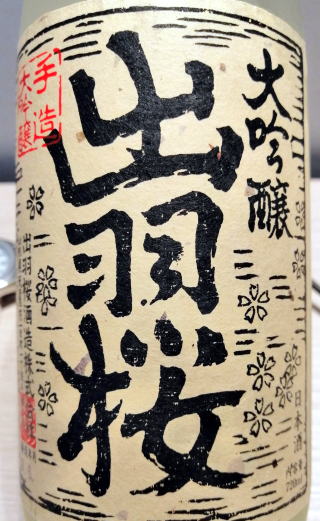 大吟醸
出羽桜
手造
大吟醸
出羽桜酒造株式会社
日本酒
内容量
720ml